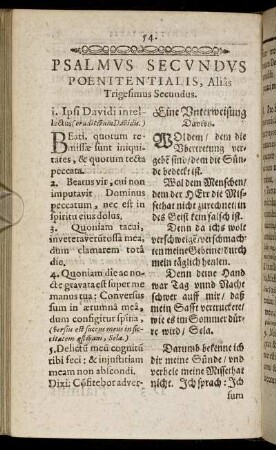 54.
PSALMVS SECVNDVS
POENITENTIALIS, Aliàs
Trigesimus Secundus.
1. Ipsi Davidi intel-
lectus, (eruditio ipsi Davidis.)
BEati, quorum re-
missæ sunt iniqui-
tates, & quorum tecta
peccata.
2. Beatus vir, cui non
imputavit Dominus
peccatum, nec est in
spiritu eius dolus.
3. Quoniam tacui,
inveteraverũt ossa mea,
dum clamarem tota
die.
4. Quoniam die ac no-
cte gravata est super me
manus tua: Conversus
sum in ærumnâ meâ,
dum configitur spina,
5. Delictũ meũ cognitũ
tibi feci: & injustitiam
meam non abscondi.
Dixi: Cõfitebor adver-
Eine Unterweisung
Davids.
WOl dem / dem die
Ubertrettung ver-
geben sind / dem die Sün-
de bedeckt ist.
Wol dem Menschen /
dem der HErr die Mis-
sethat nicht zurechnet / in
des Geist kein falsch ist.
Denn da ichs wolt
verschweigẽ / verschmach-
ten meine Gebeine / durch
mein täglich heulen.
Denn deine Hand
war Tag unnd Nacht
schwer auff mir / daß
mein Safft vertrucktete /
wie es im Sommer dür-
re wird / Sela.
Darumb bekenne ich
dir meine Sünde / und
verhele meine Missethat
nicht. Ich sprach: Ich